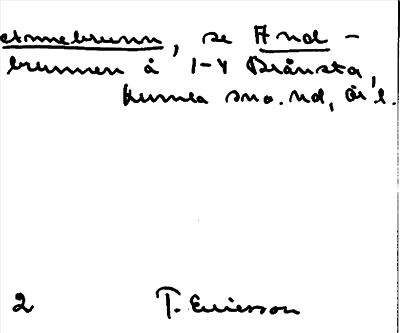 Annebrunn, se And-
brunnen å 1-4 Brånsta,
Kumla sn o. hd, Ör. l.
2 T. Ericsson